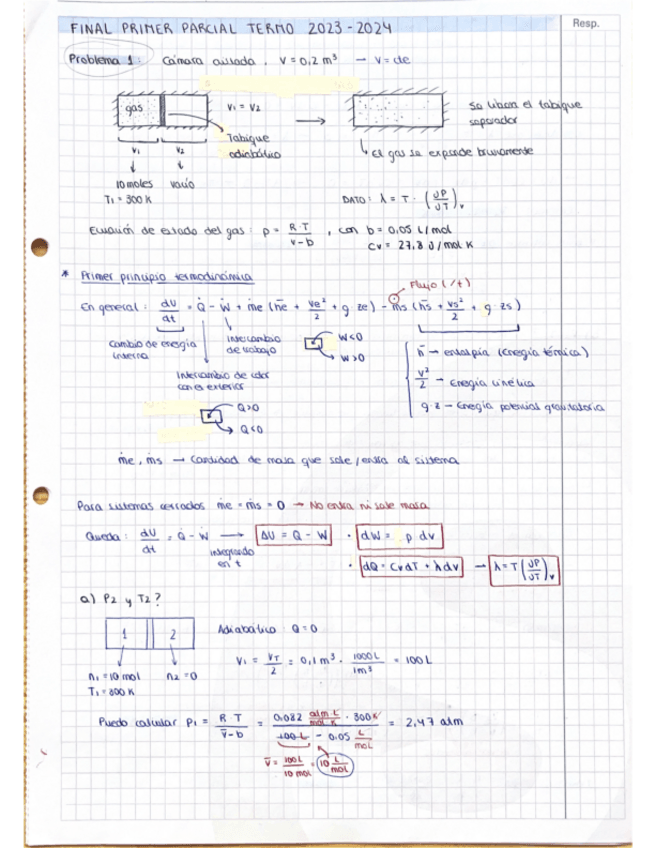 FINAL PRIMER PARCIAL TERMO 2023-2024
Resp.
Problema 1: Cámara aislada, V = 0,2 m³ → V = cte
gas
V₁ = V₂
Tabique adiabático
Se libera el tabique separador
El gas se expande bruscamente
V₁ V₂
10 moles vacío
T₁ = 300 K
DATO: λ = T · (∂P/∂T)ᵥ
Ecuación de estado del gas: p = RT/(v-b), con b = 0,05 L/mol
Cv = 27,8 J/mol K
* Primer principio termodinámica
Flujo (/t)
En general: dU/dt = Q̇ - Ẇ + ṁe (h̄e + ve²/2 + g ze) - ṁs (h̄s + vs²/2 + g·zs)
Cambio de energía interna
Intercambio de trabajo
W<0
W>0
Intercambio de calor con el exterior
Q>0
Q<0
h̄ → entalpía (Energía térmica)
v²/2 → Energía cinética
g·z → Energía potencial gravitatoria
ṁe, ṁs → Cantidad de masa que sale/entra al sistema
Para sistemas cerrados ṁe = ṁs = 0 → No entra ni sale masa
Queda: dU/dt = Q̇ - Ẇ → ΔU = Q - W · dW = p dv
integrando en t
· dQ = Cv dT + λ dv → λ = T (∂P/∂T)ᵥ
a) P₂ y T₂?
1 2
Adiabático: Q = 0
n₁ = 10 mol n₂ = 0
T₁ = 300 K
V₁ = VT/2 = 0,1 m³ · 1000L/1m³ = 100 L
Puedo calcular P₁ = RT/(v̄-b) = (0,082 atm·L/mol·K · 300K)/(100 L - 0,05 L/mol) = 2,47 atm
v̄ = 100L/10 mol = 10 L/mol